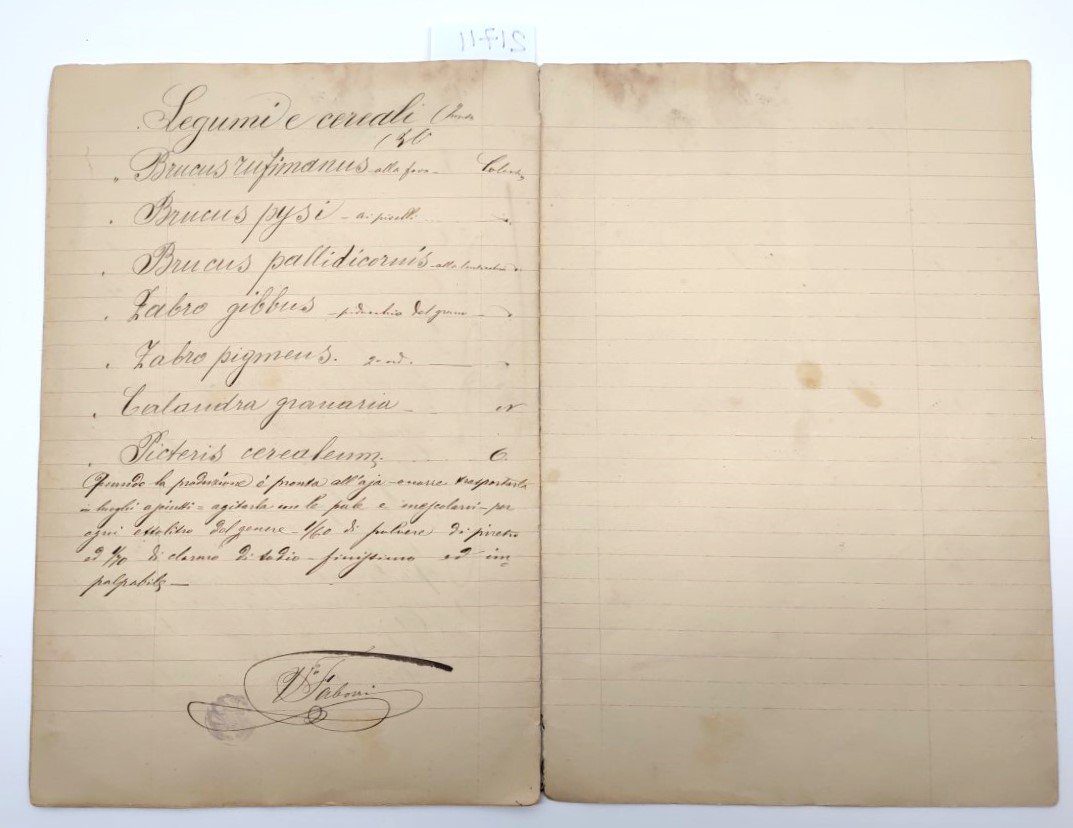 Legumi e cereali
Brucus rufimanus alla fava
Brucus pysi - ai piselli
Brucus pallidicornis
Zabro gibbus - pidocchio del grano
Zabro pigmeus.
Calandra granaria
Picteris cerealeum
Quando la produzione è pronta all'aja trasportarla
luoghi agitarla con le pale e mescolarvi - per
ogni ettolitro del genere - 1/60 di polvere di piretro
ed 1/70 di cloruro di sodio - finissimo ed im=
palpabile